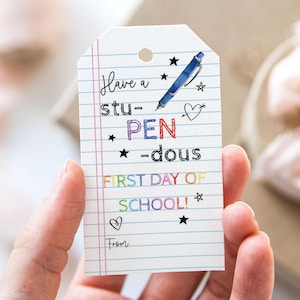 Have a
stu-
PEN
-dous
FIRST DAY OF
SCHOOL!
From: